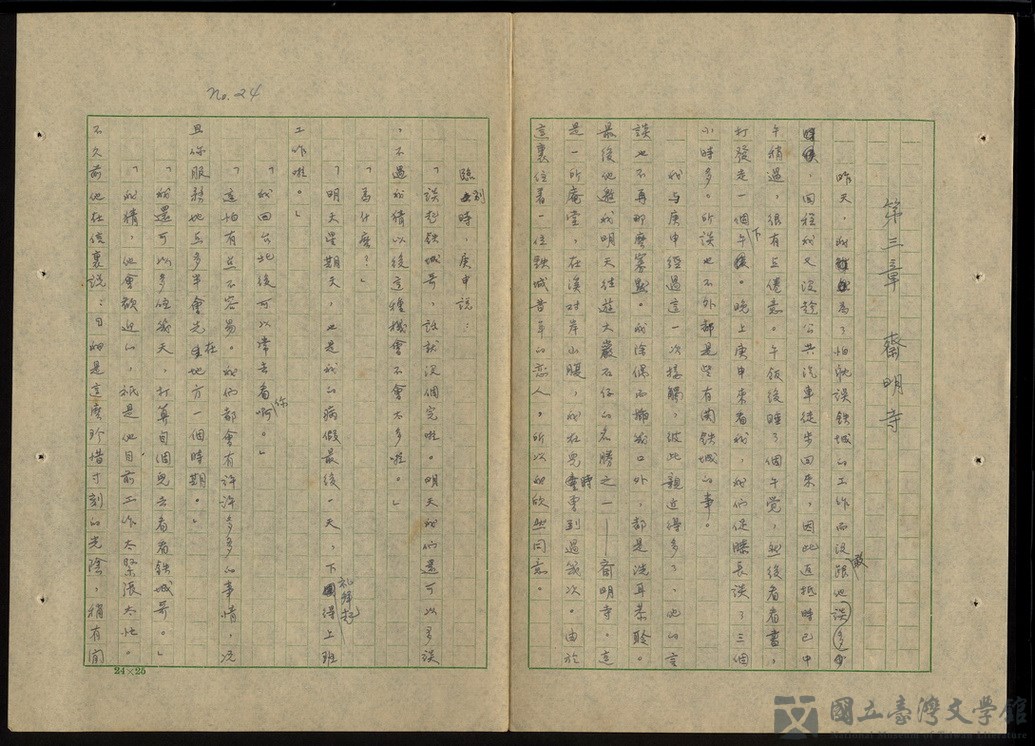 No. 24
第三章 齋明寺
昨天，我為了怕耽誤鐵城的工作而沒敢跟他談多少
時候，回程我又沒趁公共汽車徒步回來，因此返抵時已中
午稍過，很有点倦意。午飯後睡了個午覺，然後看看書，
打發走一個下午。晚上庚申來看我，我們促膝長談了三個
小時多。所談也不外都是些有關鐵城的事。
我与庚申經過這一次接觸，彼此親近得多了，他的言
談也不再那麼寡默。我除偶而挪揄口外，都是洗耳恭聆。
最後他邀我明天往遊大嵙石仔的名勝之一——齋明寺。這
是一所庵堂，在溪对岸山腹，我在兒童時到過幾次。由於
這裏住着一位鐵城昔年的恋人，所以我欣然同意。
臨別時，庚申說：
「談起鐵城哥，話就沒個完啦。明天我們還可以多談
，不過我猜以後這種機會不會太多啦。」
「為什麼？」
「明天星期天，也是我的病假最後一天，下礼拜起得上班
工作啦。」
「我回台北後可以常去看你啊。」
「這怕有点不容易。我們都會有許許多多的事情，况
且你服務地点多半會先在地方一個時期。」
「我還可以多住幾天，打算自個兒去看看鐵城哥。」
「我猜，他會歡迎的，祇是他目前工作太緊張太忙。
不久前他在信裏說：目細是這麼珍惜寸刻的光陰，稍有間
24×25
國立臺灣文學館
National Museum of Taiwan Literature